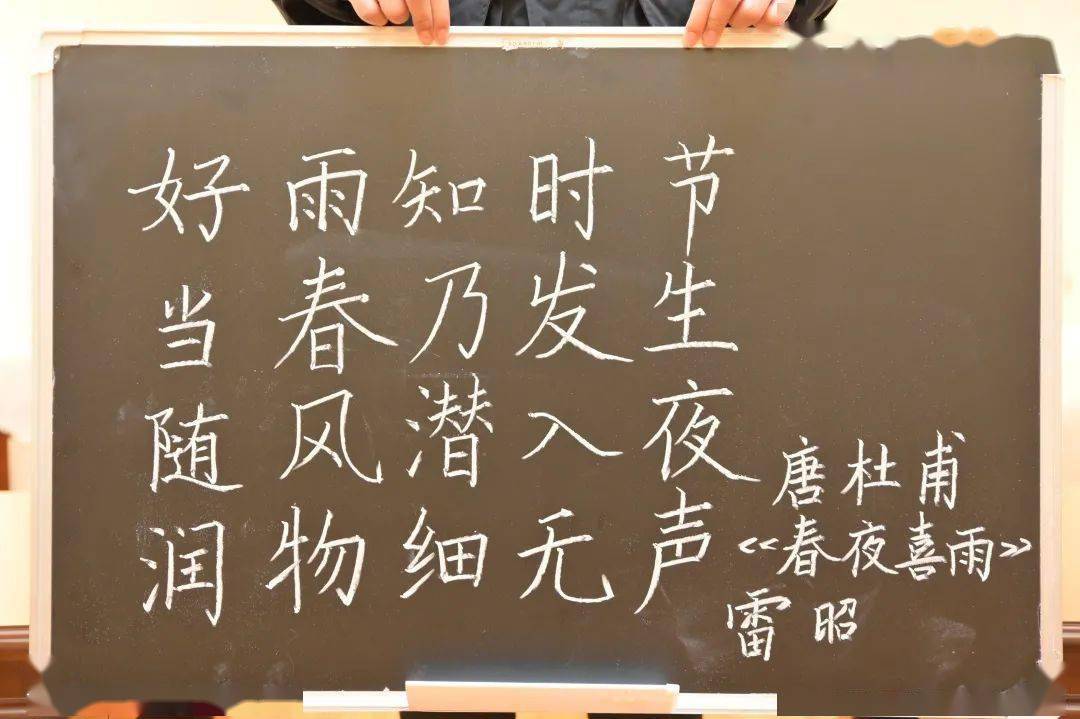 好雨知时节
当春乃发生
随风潜入夜
润物细无声
唐杜甫
《春夜喜雨》
雷昭